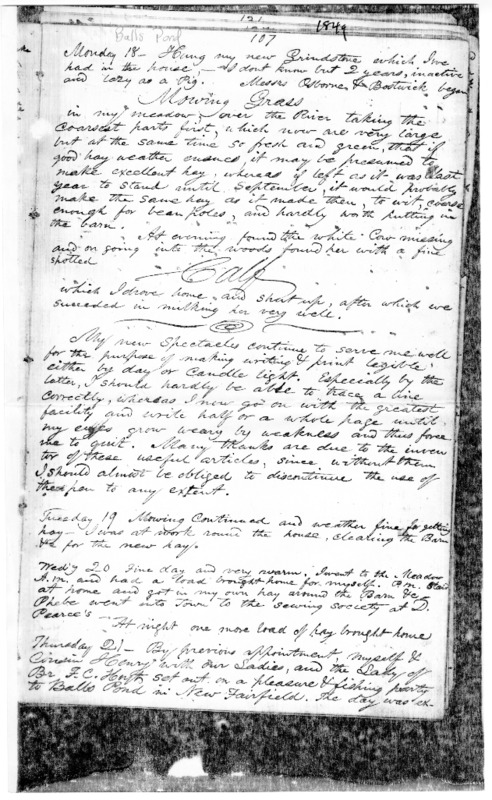 121
Balls Pond
1841
107
Monday 18 - Hung my new Grindstone which I've
had in the house, I dont know but 2 years, inactive
and lazy as a Pig. Messrs Osborne & Bostwick began
Mowing Grass
in my meadow over the River taking the
coarsest parts first, which now are very large
but at the same time so fresh and green, that if
good hay weather ensues, it may be presumed to
make excellent hay, whereas if left as it was last
year to stand until September, it would probably
make the same hay as it made then, to wit, coarse
enough for bean poles, and hardly worth putting in
the barn.
At evening found the white Cow missing
and on going into the woods found her with a fine
spotted
Calf
which I drove home and shut up, after which we
succeded in milking her very well.
My new Spectacles continue to serve me well
for the purpose of making writing & print legible
either by day or Candle light. Especially by the
latter, I should hardly be able to trace a line
correctly, whereas I now go on with the greatest
facility and write half or a whole page until
my eyes grow weary by weakness and thus force
me to quit. Many thanks are due to the inven
tor of these useful articles, since without them
I should almost be obliged to discontinue the use of
the pen to any extent.
Tuesday 19 Mowing Continued and weather fine for getting
hay - I was at work round the house, clearing the Barn
&c for the new hay.
Wed'y 20 Fine day and very warm. I went to the Meadow
A.m. and had a load brought home for myself. P.m.
at home and got in my own hay around the Barn &c
Phebe went into Town to the sewing society at D.
Pearce's
At night one more load of hay brought home
Thursday 21 - By previous appointment, myself &
Cousin Henry with our Ladies, and the Lady of
Br. F. C. set out on a pleasure & fishing party
to Balls Pond in New Fairfield. The day was ex-